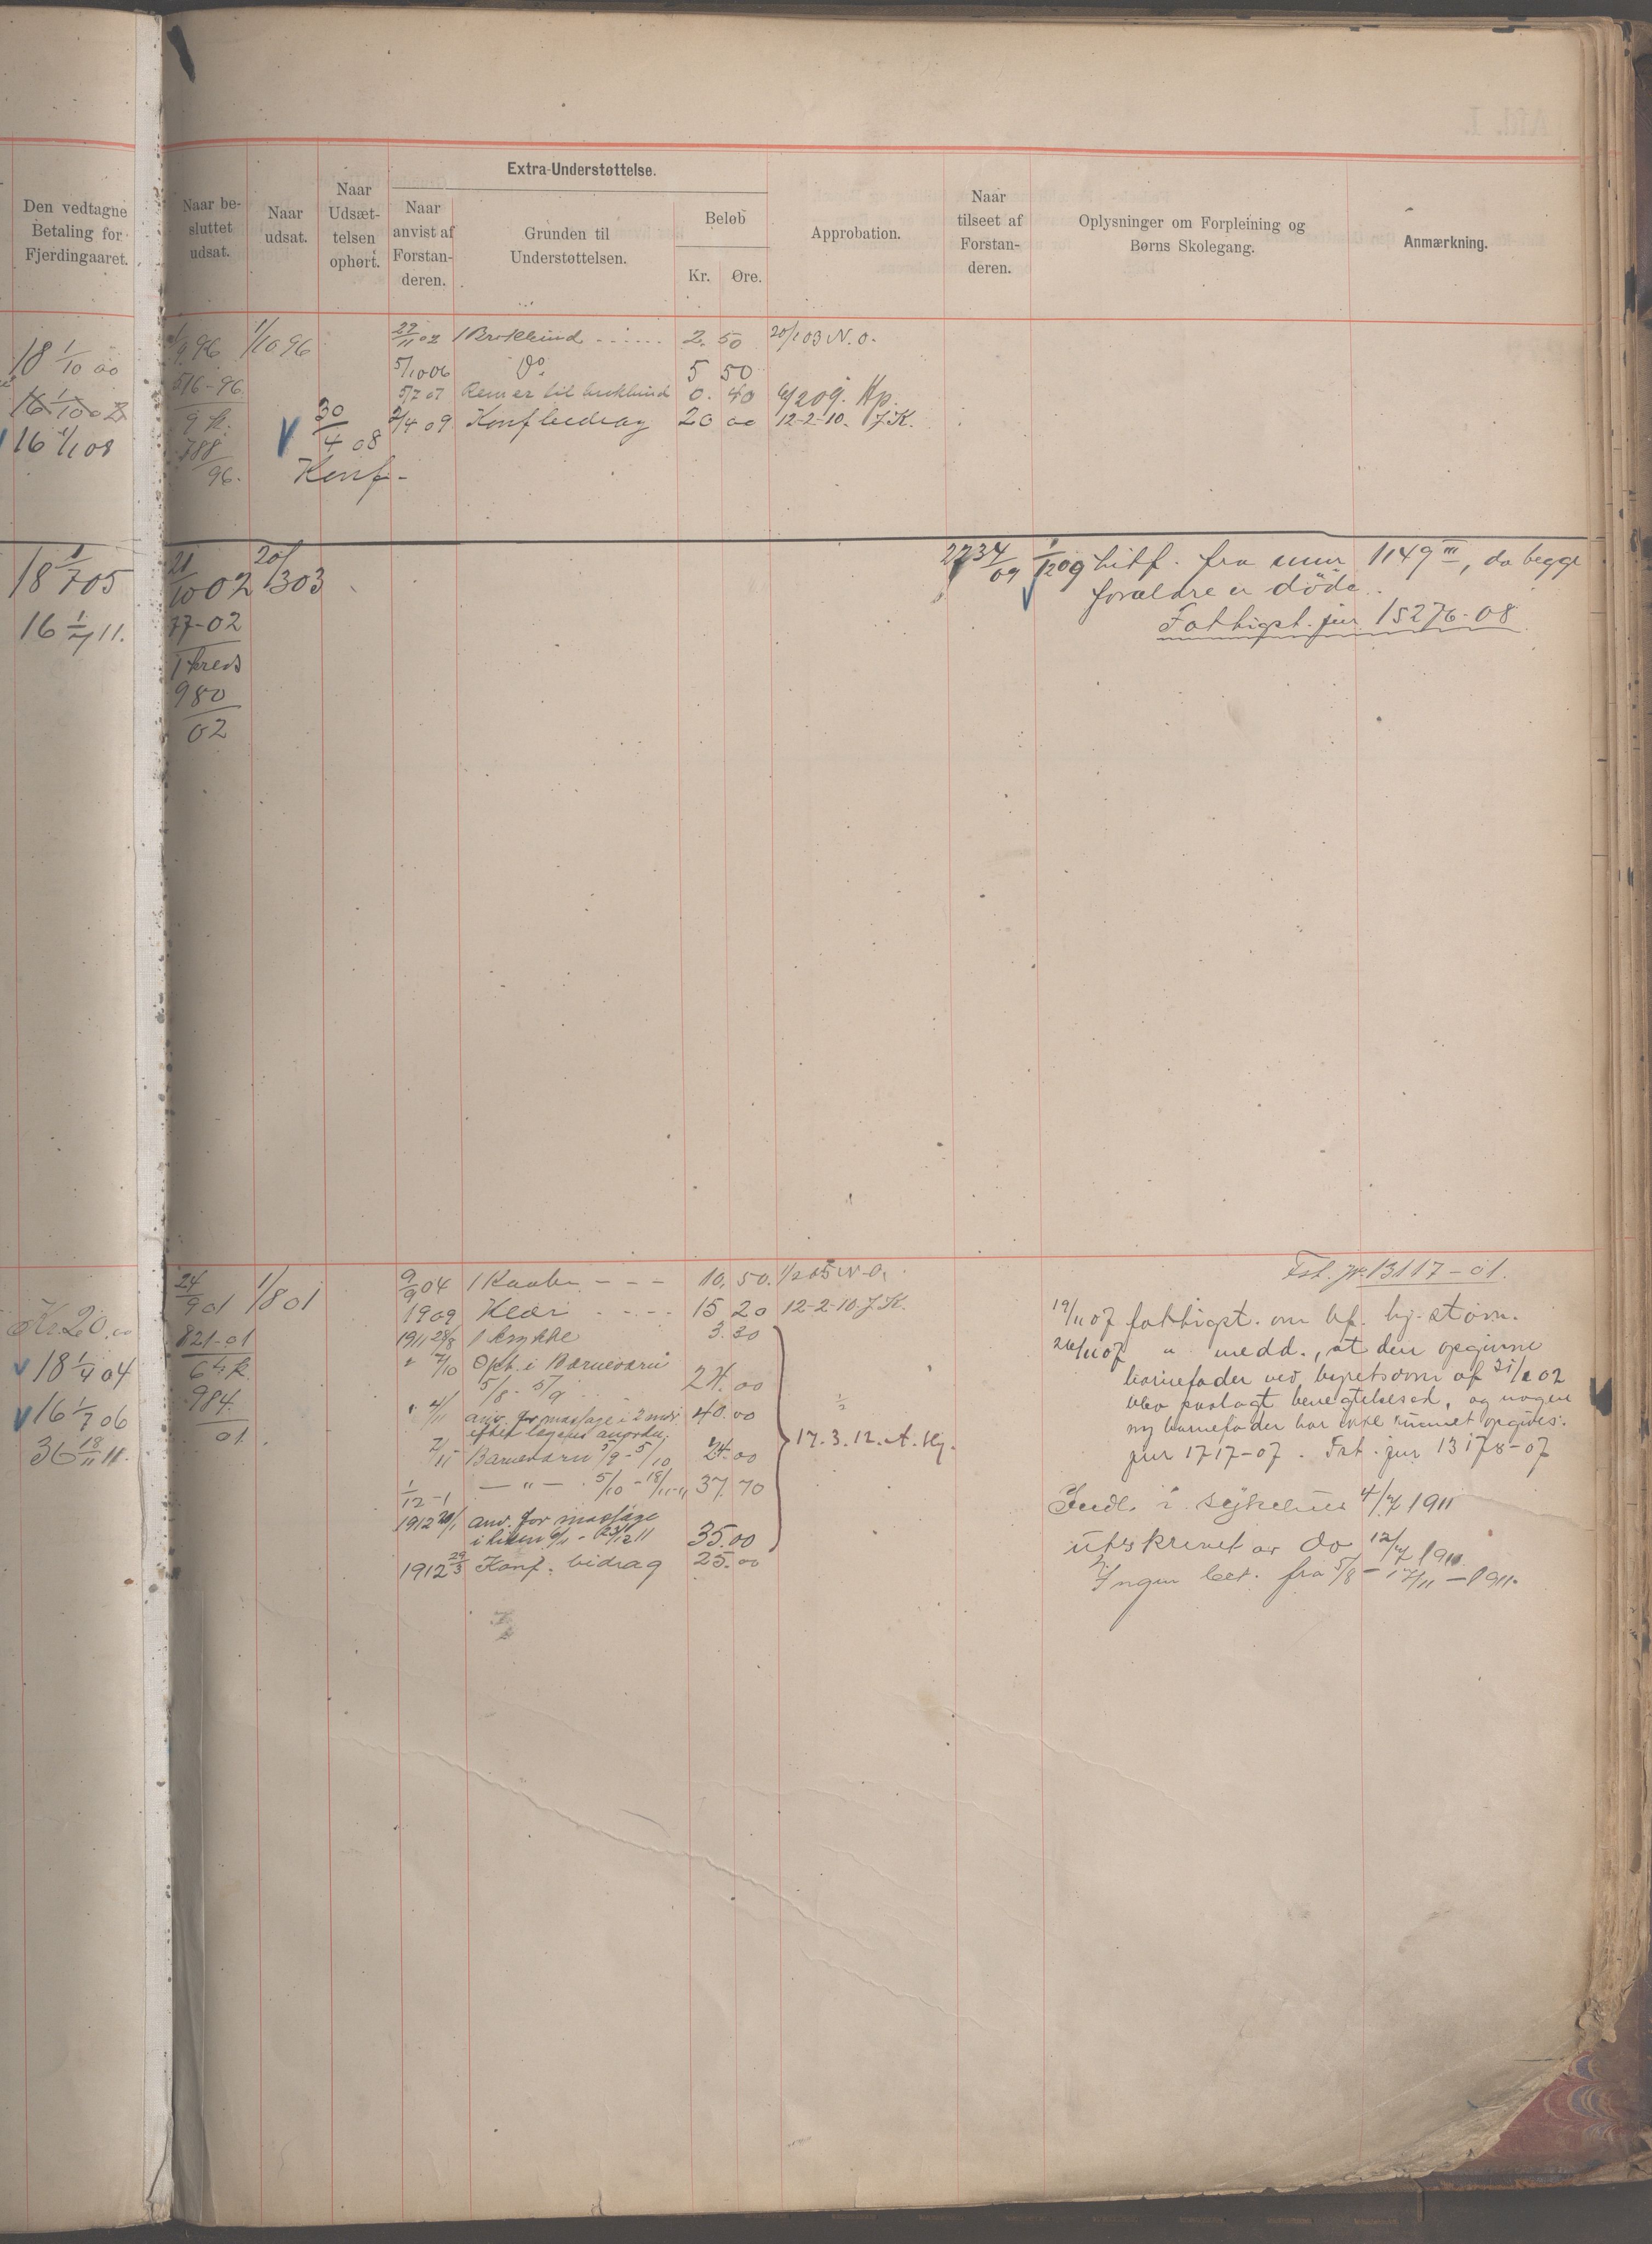 Den vedtagne
Betaling for
Fjerdingaaret.
Naar be-
sluttet
udsat.
Naar
udsat.
Naar
Udsæt-
telsen
ophørt.
Extra-Understøttelse.
Naar
anvist af
Forstan-
deren.
Grunden til
Understøttelsen.
Beløb
Kr. Øre.
Approbation.
Naar
tilseet af
Forstan-
deren.
Oplysninger om Forpleining og
Børns Skolegang.
Anmærkning.
18 1/10 00
16 1/10 02
16 1/1 08
1/9 96 1/10 96
516-96
9 k.
788/96.
30/4 08
Konf-
22/11 02 1 Brokbind 2. 50 20/1 03 N.O.
5/10 06 Do 5 50
5/7 07 Remer til brokbind 0. 40 4/2 09. Kp.
2/4 09 Konfbidrag 20 00 12-2-10. J.K.
18 1/7 05
16 1/4 11.
21/10 02 20/1 303
77-02
1 kreds
980/02
2734/09 1/12 09 hitf. fra mm 1149 III, da begge
forældre er döde.
Fattigst. jur 15276-08
Kr. 20.00
18 1/4 04
16 1/7 06
36 18/11 11.
24/9 01 1/8 01
821-01
6 k.
984/01.
9/9 04 1 Kaabe - - - 10. 50. 1/2 05 N.O.
1909 Klær 15 20 12-2-10. J.K.
1911 28/8 1 krykke 3.30
" 7/10 Oph. i Barnevarn
5/8 - 5/9 24.00
" 4/11 anv. for massage i 2 mdr. 40.00
efter lægens anordn.
7/11 Barnevarn 5/9 - 5/10 24.00
1/12-1 - " - 5/10 - 18/11-11 37.70
1912 20/1 anv. for massage
i tiden 6/11 - 23/12 11 35.00
1912 29/3 Konf. bidrag 25.00
17.3.12. A. Kj.
Fst. jr. 13117-01.
19/11 07 fattigst. om bf. hj. støvn.
26/11 07 " medd., at den opgivne
barnefader ved byretsdom af 21/2 02
blev paalagt benegtelsesed, og nogen
ny barnefader har ikke kunnet opgives.
jur 1717-07. Fst. jur 13178-07
Indl. i sykehus 4/7 1911
utskrevet av Do 12/7 1911.
Ingen bet. fra 5/8 - 17/11 - 1911.